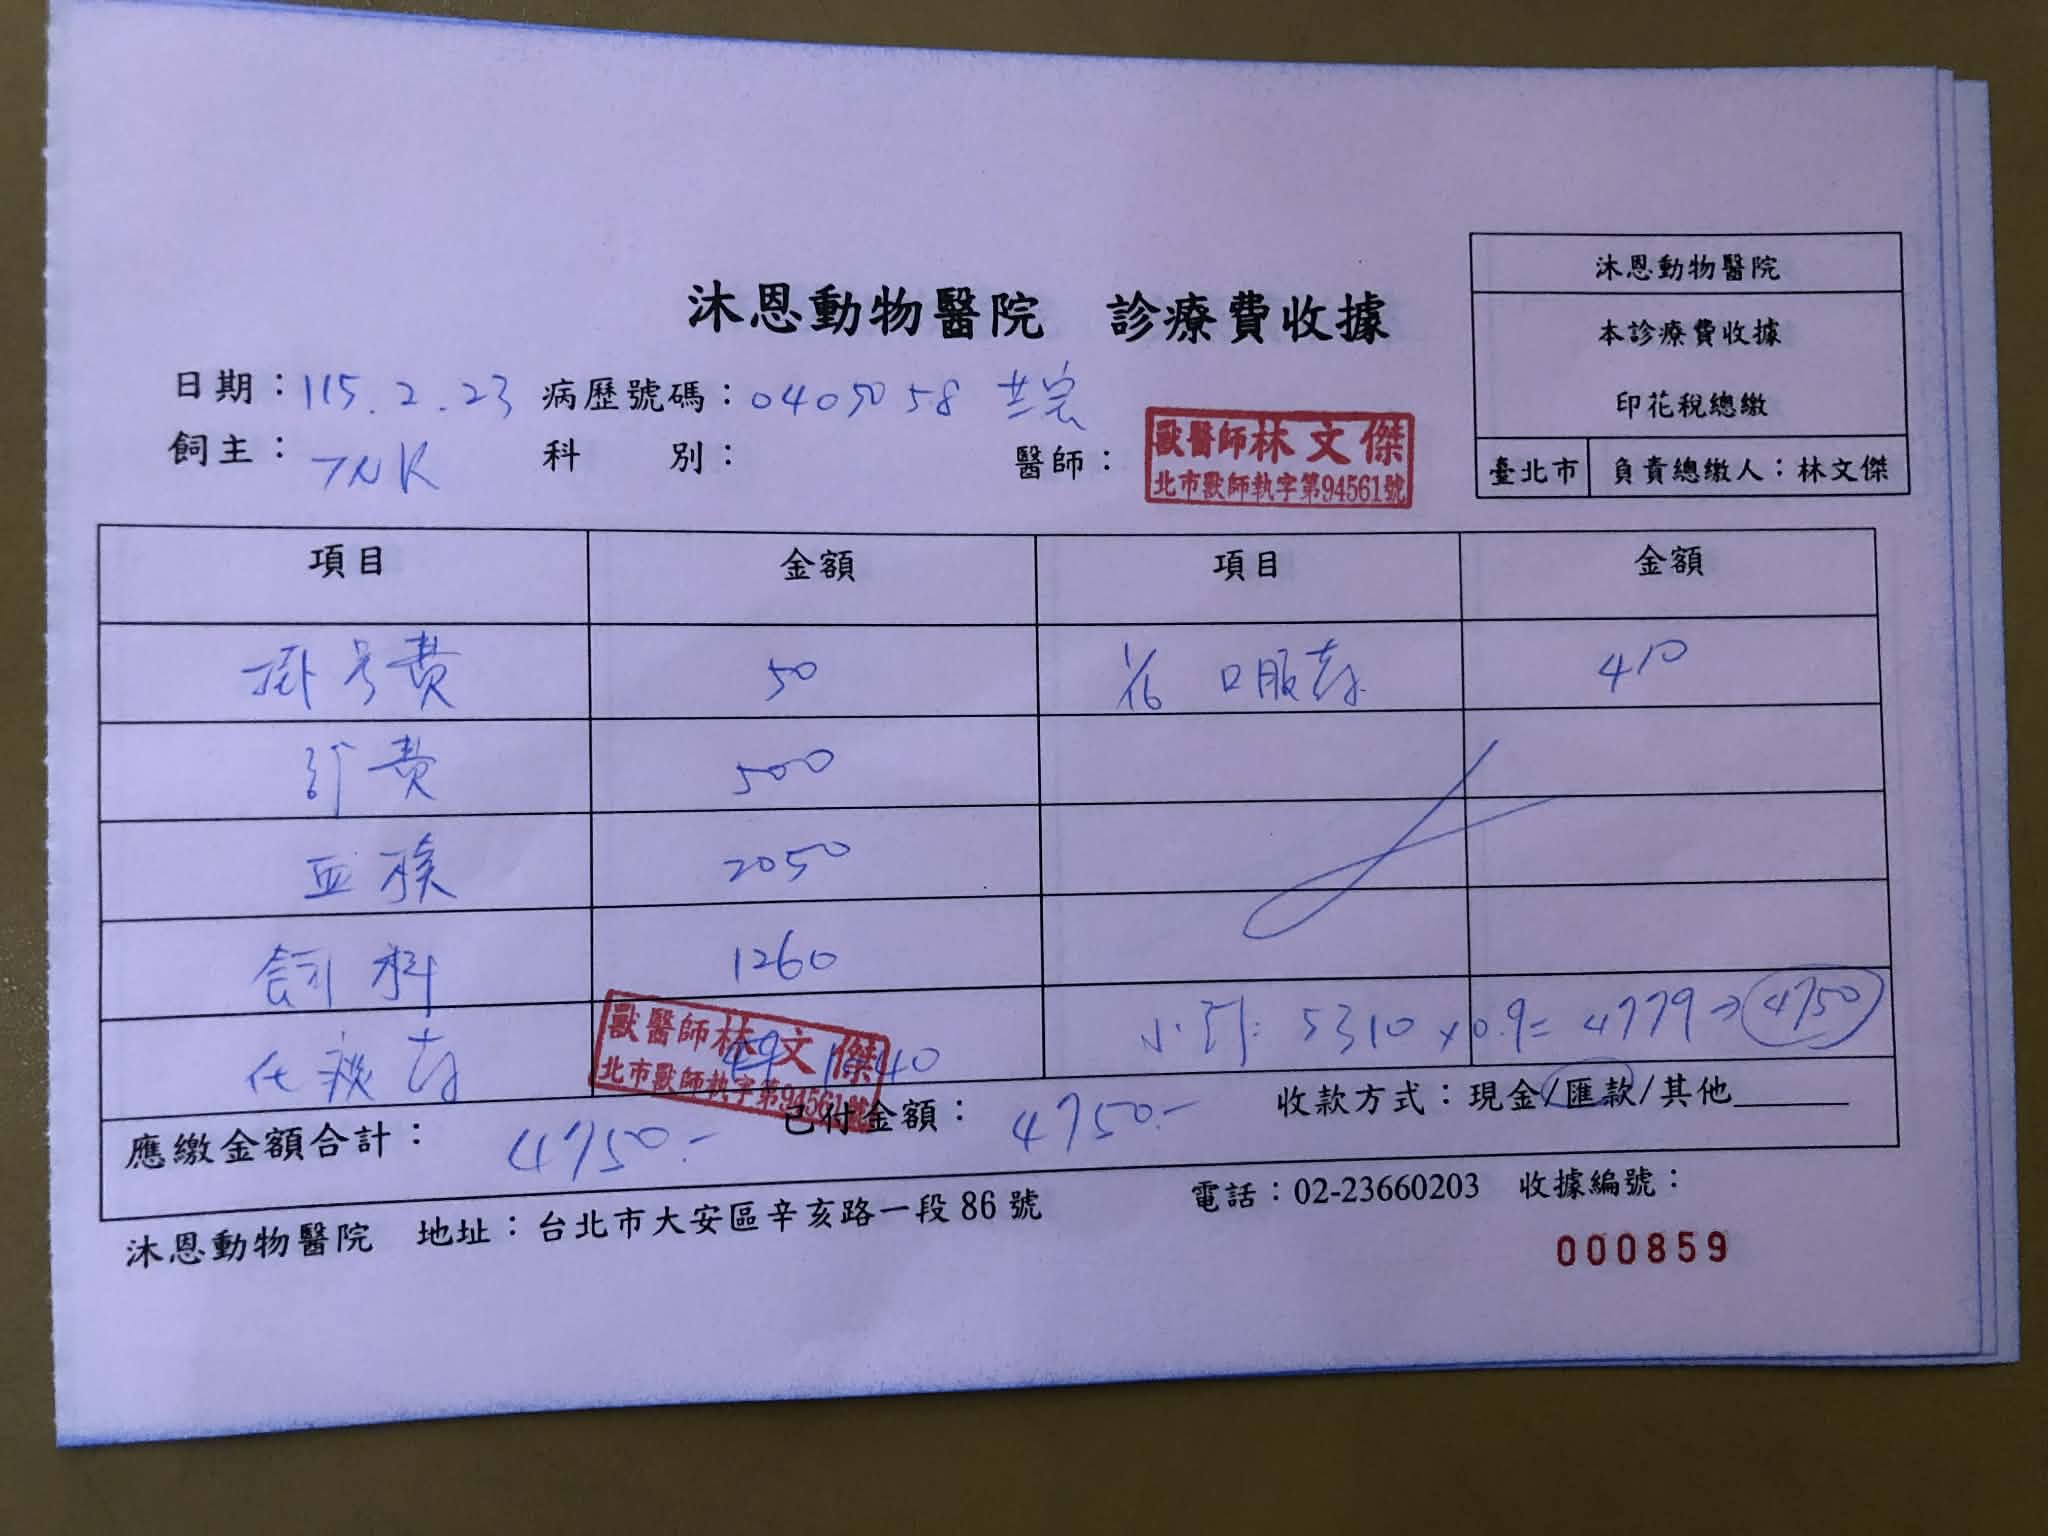 沐恩動物醫院
本診療費收據
印花稅總繳
臺北市 負責總繳人：林文傑
沐恩動物醫院 診療費收據
日期：115.2.23 病歷號碼：0405058
飼主：TNR 科 別： 醫師：
獸醫師林文傑
北市獸師執字第94561號
項目 金額 項目 金額
掛号費 50 口服藥 410
診費 500
血檢 2050
飼料 1260
化痰藥 1040 小計: 5310 x 0.9 = 4779 → 4750
獸醫師林文傑
北市獸師執字第94561號
應繳金額合計：4750.- 已付金額：4750.- 收款方式：現金/匯款/其他
沐恩動物醫院 地址：台北市大安區辛亥路一段 86 號 電話：02-23660203 收據編號：
000859